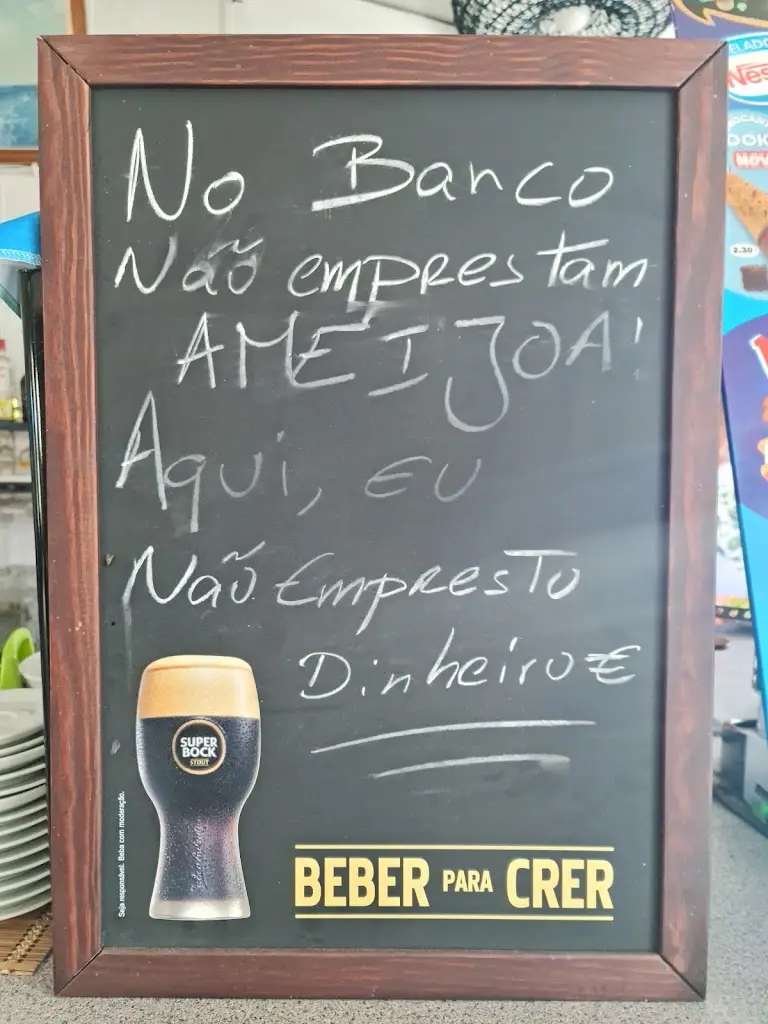 No Banco
Não emprestam
AMEIJOA!
Aqui, eu
Não Empresto
Dinheiro €
SUPER
BOCK
STOUT
Seja responsável. Beba com moderação.
BEBER PARA CRER
ELADO
Nes
OK
NOV
2.30